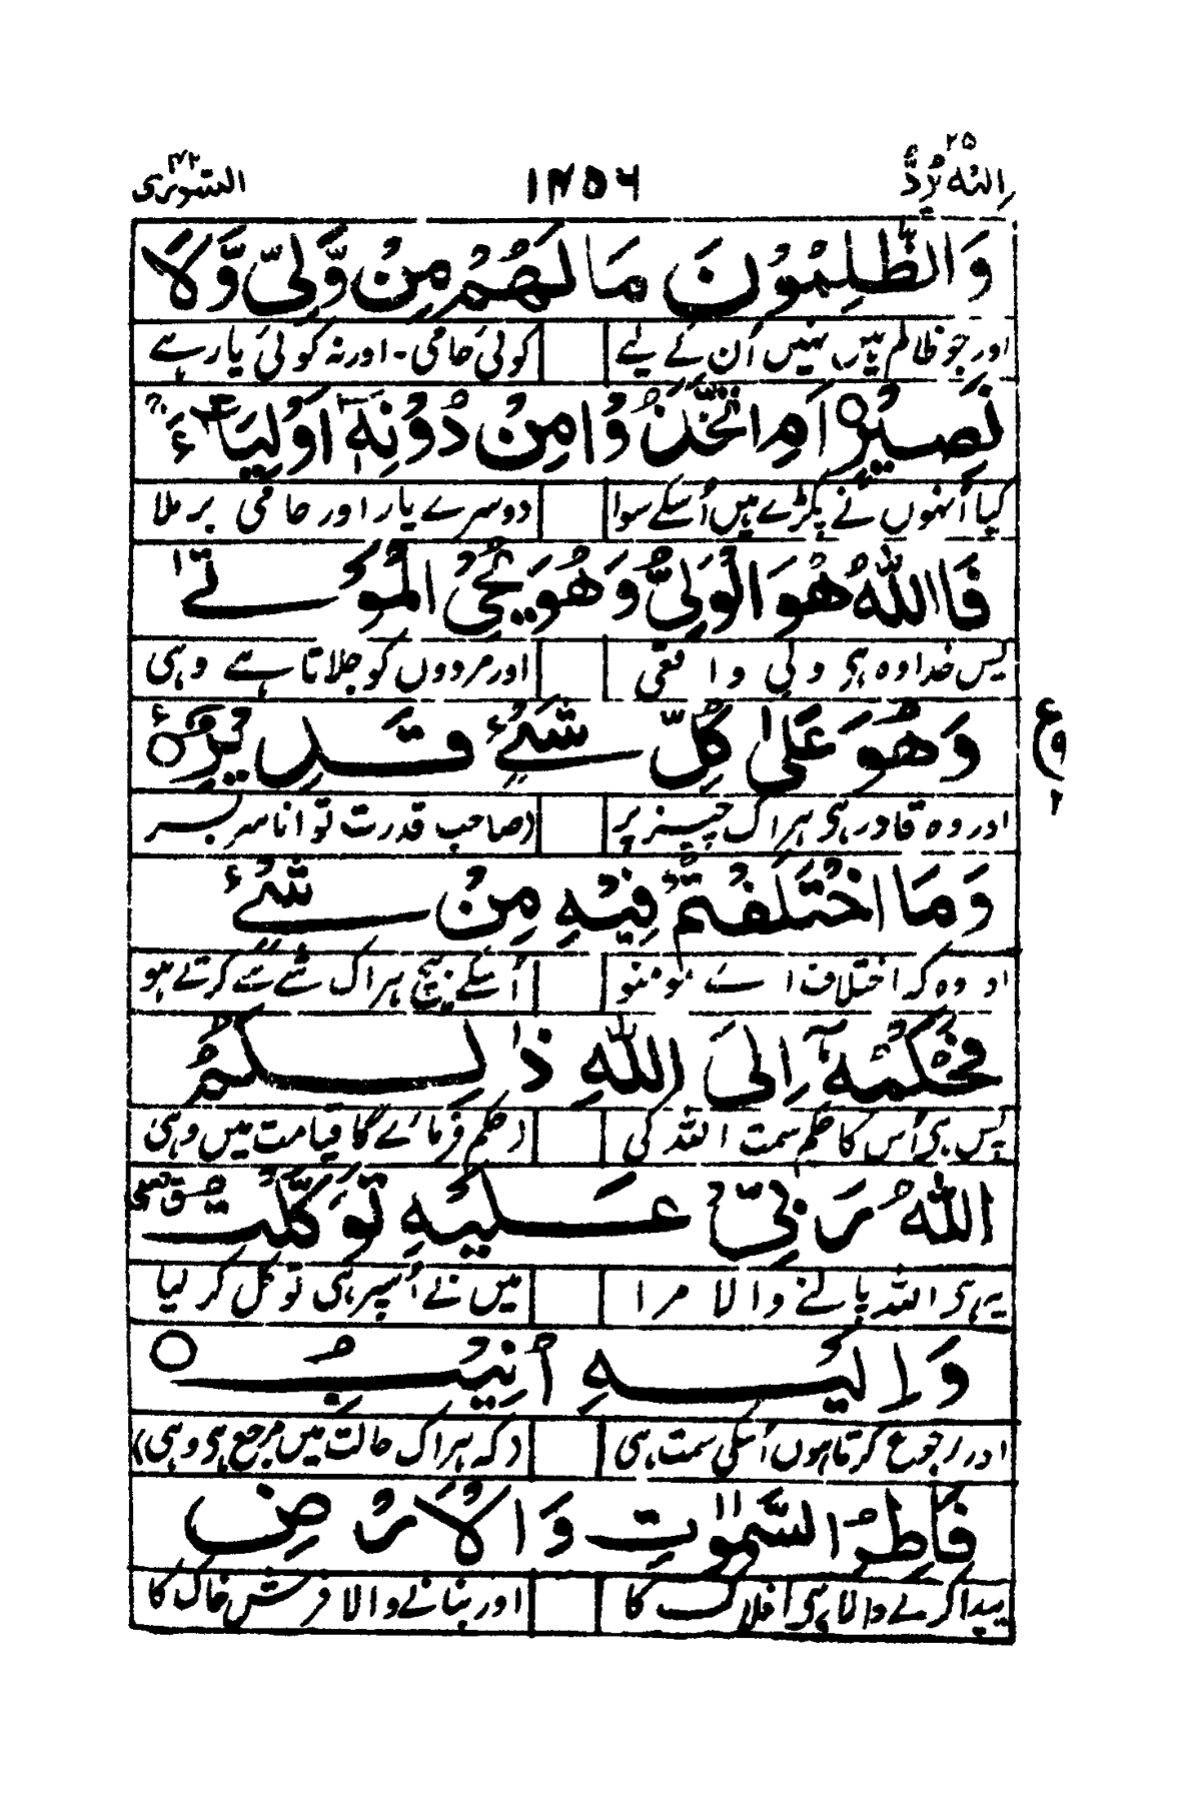 ۲۵ ۱۴۵۶ ۴۲
الیه یرد الشوری
وَالظّٰلِمُوْنَ مَا لَهُمْ مِنْ وَّلِیٍّ وَّلَا
اور جو ظالم ہیں نہیں اُن کے لیے کوئی حامی - اور نہ کوئی یار ہے
نَصِیْرٍ ○ اَمِ اتَّخَذُوْا مِنْ دُوْنِهٖۤ اَوْلِیَآءَ ۚ
کیا اُنہوں نے پکڑے ہیں اُسکے سوا دوسرے یار اور حامی بر ملا
فَاللّٰهُ هُوَ الْوَلِیُّ وَهُوَ یُحْیِ الْمَوْتٰی
پس خدا وہ ہی ولی واقعی اور مردوں کو جلاتا ہے وہی
وَهُوَ عَلٰی كُلِّ شَیْءٍ قَدِیْرٌ ○ ع
۹
۲
اور وہ قادر ہی ہر اک چیز پر (صاحب قدرت توانا سر بسر
وَمَا اخْتَلَفْتُمْ فِیْهِ مِنْ شَیْءٍ
او وہ کہ اختلاف اے مومنو اُسکے بیچ ہر اک شے سے کرتے ہو
فَحُكْمُهٗۤ اِلَی اللّٰهِ ذٰلِكُمُ
پس ہی اُس کا حکم سمت اللہ کی (حکم فرمائے گا قیامت میں وہی
اللّٰهُ رَبِّیْ عَلَیْهِ تَوَكَّلْتُ
یہ ہی اللہ پالنے والا مرا میں نے اُسپر ہی توکل کر لیا
وَاِلَیْهِ اُنِیْبُ ○
اور رجوع کرتا ہوں اُسکی سمت ہی (کہ ہر اک حالت میں مرجع ہی وہی)
فَاطِرُ السَّمٰوٰتِ وَالْاَرْضِ
پیدا کرنے والا ہی افلاک کا اور بنانے والا فرش خاک کا